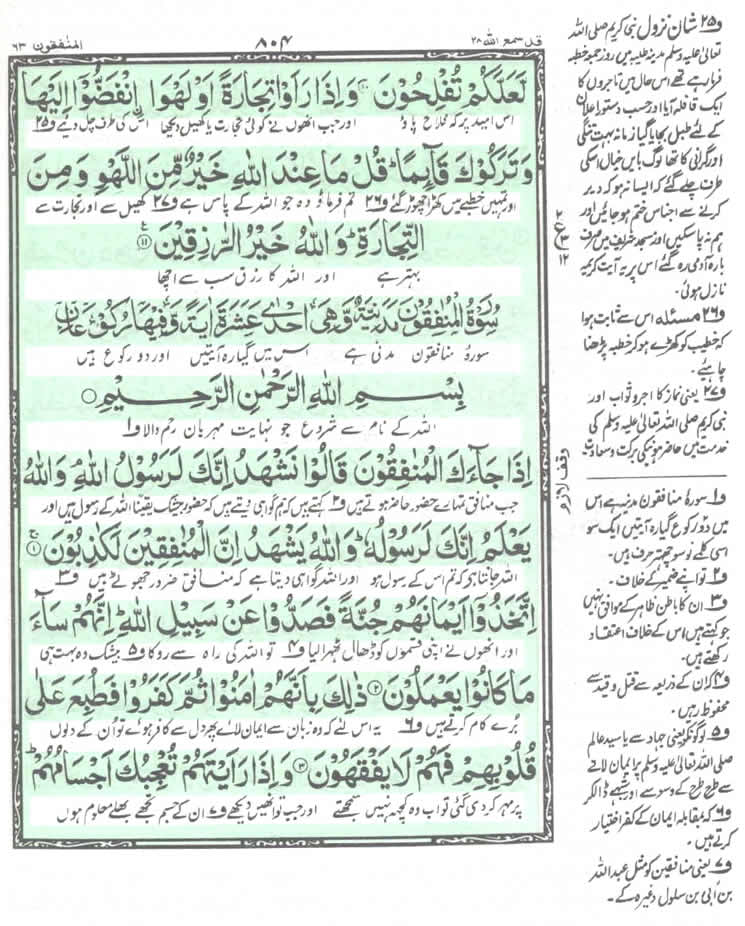 قد سمع اللہ ۲۸
۸۰۴
المنٰفقون ۶۳
لَعَلَّكُمْ تُفْلِحُوْنَ۝ وَاِذَا رَاَوْا تِجَارَةً اَوْ لَهْوَا اِنْفَضُّوْۤا اِلَیْهَا
اس امید پر کہ فلاح پاؤ اور جب انھوں نے کوئی تجارت یا کھیل دیکھا اس کی طرف چل دیے ف۲۵
وَتَرَكُوْكَ قَآىِٕمًا ؕ قُلْ مَا عِنْدَ اللّٰهِ خَیْرٌ مِّنَ اللَّهْوِ وَمِنَ
اور تمہیں خطبے میں کھڑا چھوڑ گئے ف۲۶ تم فرماؤ وہ جو اللہ کے پاس ہے ف۲۷ کھیل سے اور تجارت سے
التِّجَارَةِ ؕ وَاللّٰهُ خَیْرُ الرّٰزِقِیْنَ ۝۱۱
بہتر ہے اور اللہ کا رزق سب سے اچھا
سُوْرَةُ الْمُنٰفِقُوْنَ مَدَنِیَّةٌ وَّهِیَ اِحْدٰی عَشَرَةَ اٰیَةً وَّفِیْهَا رُكُوْعَانِ
سورۂ منافقون مدنی ہے اس میں گیارہ آیتیں اور دو رکوع ہیں
بِسْمِ اللّٰهِ الرَّحْمٰنِ الرَّحِیْمِ ۝
اللہ کے نام سے شروع جو نہایت مہربان رحم والا ف۱
اِذَا جَآءَكَ الْمُنٰفِقُوْنَ قَالُوْا نَشْهَدُ اِنَّكَ لَرَسُوْلُ اللّٰهِ ۘ وَاللّٰهُ
جب منافق تمہارے حضور حاضر ہوتے ہیں ف۲ کہتے ہیں کہ ہم گواہی دیتے ہیں کہ حضور بیشک یقینا اللہ کے رسول ہیں اور
یَعْلَمُ اِنَّكَ لَرَسُوْلُهٗ ؕ وَاللّٰهُ یَشْهَدُ اِنَّ الْمُنٰفِقِیْنَ لَكٰذِبُوْنَ ۝۱
اللہ جانتا ہے کہ تم اس کے رسول ہو اور اللہ گواہی دیتا ہے کہ منافق ضرور جھوٹے ہیں ف۳
اِتَّخَذُوْۤا اَیْمَانَهُمْ جُنَّةً فَصَدُّوْا عَنْ سَبِیْلِ اللّٰهِ ؕ اِنَّهُمْ سَآءَ
اور انھوں نے اپنی قسموں کو ڈھال ٹھہرا لیا ف۴ تو اللہ کی راہ سے روکا ف۵ بیشک وہ بہت ہی
مَا كَانُوْا یَعْمَلُوْنَ ۝۲ ذٰلِكَ بِاَنَّهُمْ اٰمَنُوْا ثُمَّ كَفَرُوْا فَطُبِعَ عَلٰی
برے کام کرتے ہیں ف۶ یہ اس لئے کہ وہ زبان سے ایمان لائے پھر دل سے کافر ہوئے تو ان کے دلوں
قُلُوْبِهِمْ فَهُمْ لَا یَفْقَهُوْنَ ۝۳ وَاِذَا رَاَیْتَهُمْ تُعْجِبُكَ اَجْسَامُهُمْ ؕ
پر مہر کر دی گئی تو اب وہ کچھ نہیں سمجھتے اور جب تو انھیں دیکھے ف۷ ان کے جسم تجھے بھلے معلوم ہوں
۲
ع ۳
۱۲
وقف لازم
ف۲۵ شان نزول نبی کریم صلی اللہ
تعالیٰ علیہ وسلم مدینہ طیبہ میں روز جمعہ خطبہ
فرما رہے تھے اس حال میں تاجروں کا
ایک قافلہ آیا اور حسب دستور اعلان
کے لئے طبل بجایا گیا زمانہ بہت تنگی
اور گرانی کا تھا لوگ بایں خیال اسکی
طرف چلے گئے کہ ایسا نہ ہو کہ دیر
کرنے سے اجناس ختم ہو جائیں اور
ہم نہ پا سکیں اور مسجد شریف میں صرف
بارہ آدمی رہ گئے اس پر یہ آیت کریمہ
نازل ہوئی۔
ف۲۶ مسئلہ اس سے ثابت ہوا
کہ خطیب کو کھڑے ہو کر خطبہ پڑھنا
چاہئے۔
ف۲۷ یعنی نماز کا اجر و ثواب اور
نبی کریم صلی اللہ تعالیٰ علیہ وسلم کی
خدمت میں حاضر ہونیکی برکت و سعادت
ف۱ سورۂ منافقون مدنیہ ہے اس
میں دو رکوع گیارہ آیتیں ایک سو
اسی کلمے نو سو چھہتر حرف ہیں۔
ف۲ تو اپنے ضمیر کے خلاف۔
ف۳ ان کا باطن ظاہر کے موافق نہیں
جو کہتے ہیں اس کے خلاف اعتقاد
رکھتے ہیں۔
ف۴ کہ ان کے ذریعہ سے قتل و قید سے
محفوظ رہیں۔
ف۵ لوگوں کو یعنی جہاد سے یا سید عالم
صلی اللہ تعالیٰ علیہ وسلم پر ایمان لانے
سے طرح طرح کے وسوسے اور شبہے ڈالکر
ف۶ کہ بمقابلہ ایمان کے کفر اختیار
کرتے ہیں۔
ف۷ یعنی منافقین کو مثل عبداللہ
بن ابی بن سلول وغیرہ کے۔